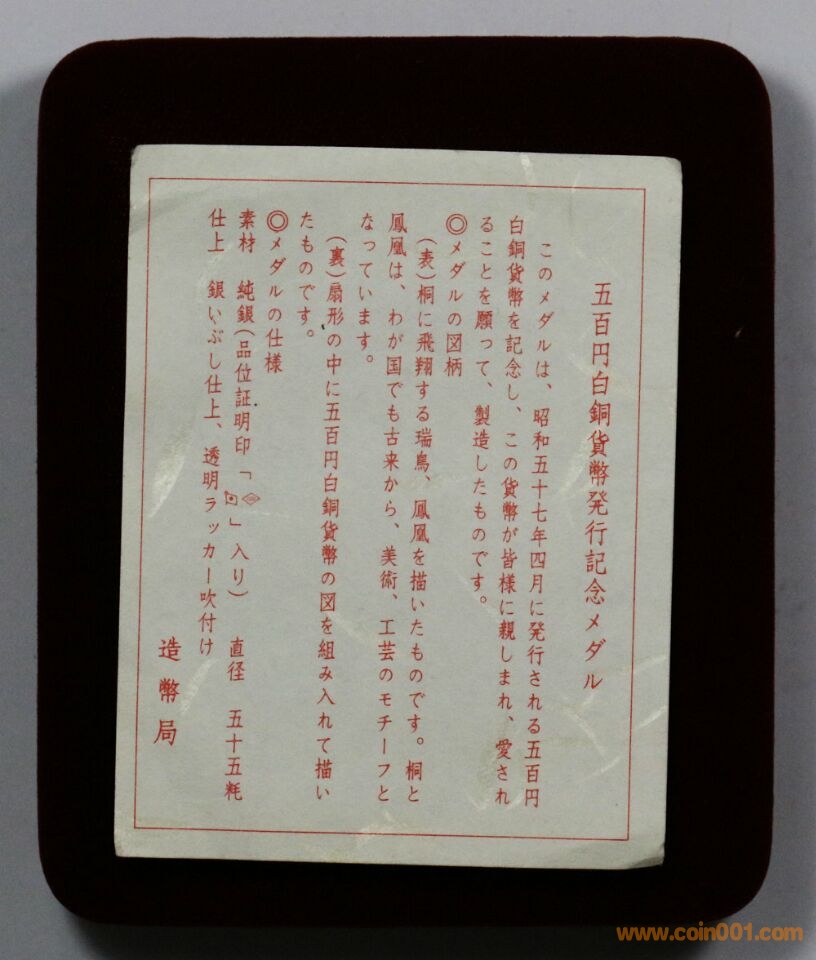 五百円白銅貨幣発行記念メダル
このメダルは、昭和五十七年四月に発行される五百円
白銅貨幣を記念し、この貨幣が皆様に親しまれ、愛され
ることを願って、製造したものです。
◎メダルの図柄
（表）桐に飛翔する瑞鳥、鳳凰を描いたものです。桐と
鳳凰は、わが国でも古来から、美術、工芸のモチーフと
なっています。
（裏）扇形の中に五百円白銅貨幣の図を組み入れて描い
たものです。
◎メダルの仕様
素材　純銀（品位証明印「」入り）　直径　五十五粍
仕上　銀いぶし仕上、透明ラッカー吹付け
造幣局
www.coin001.com